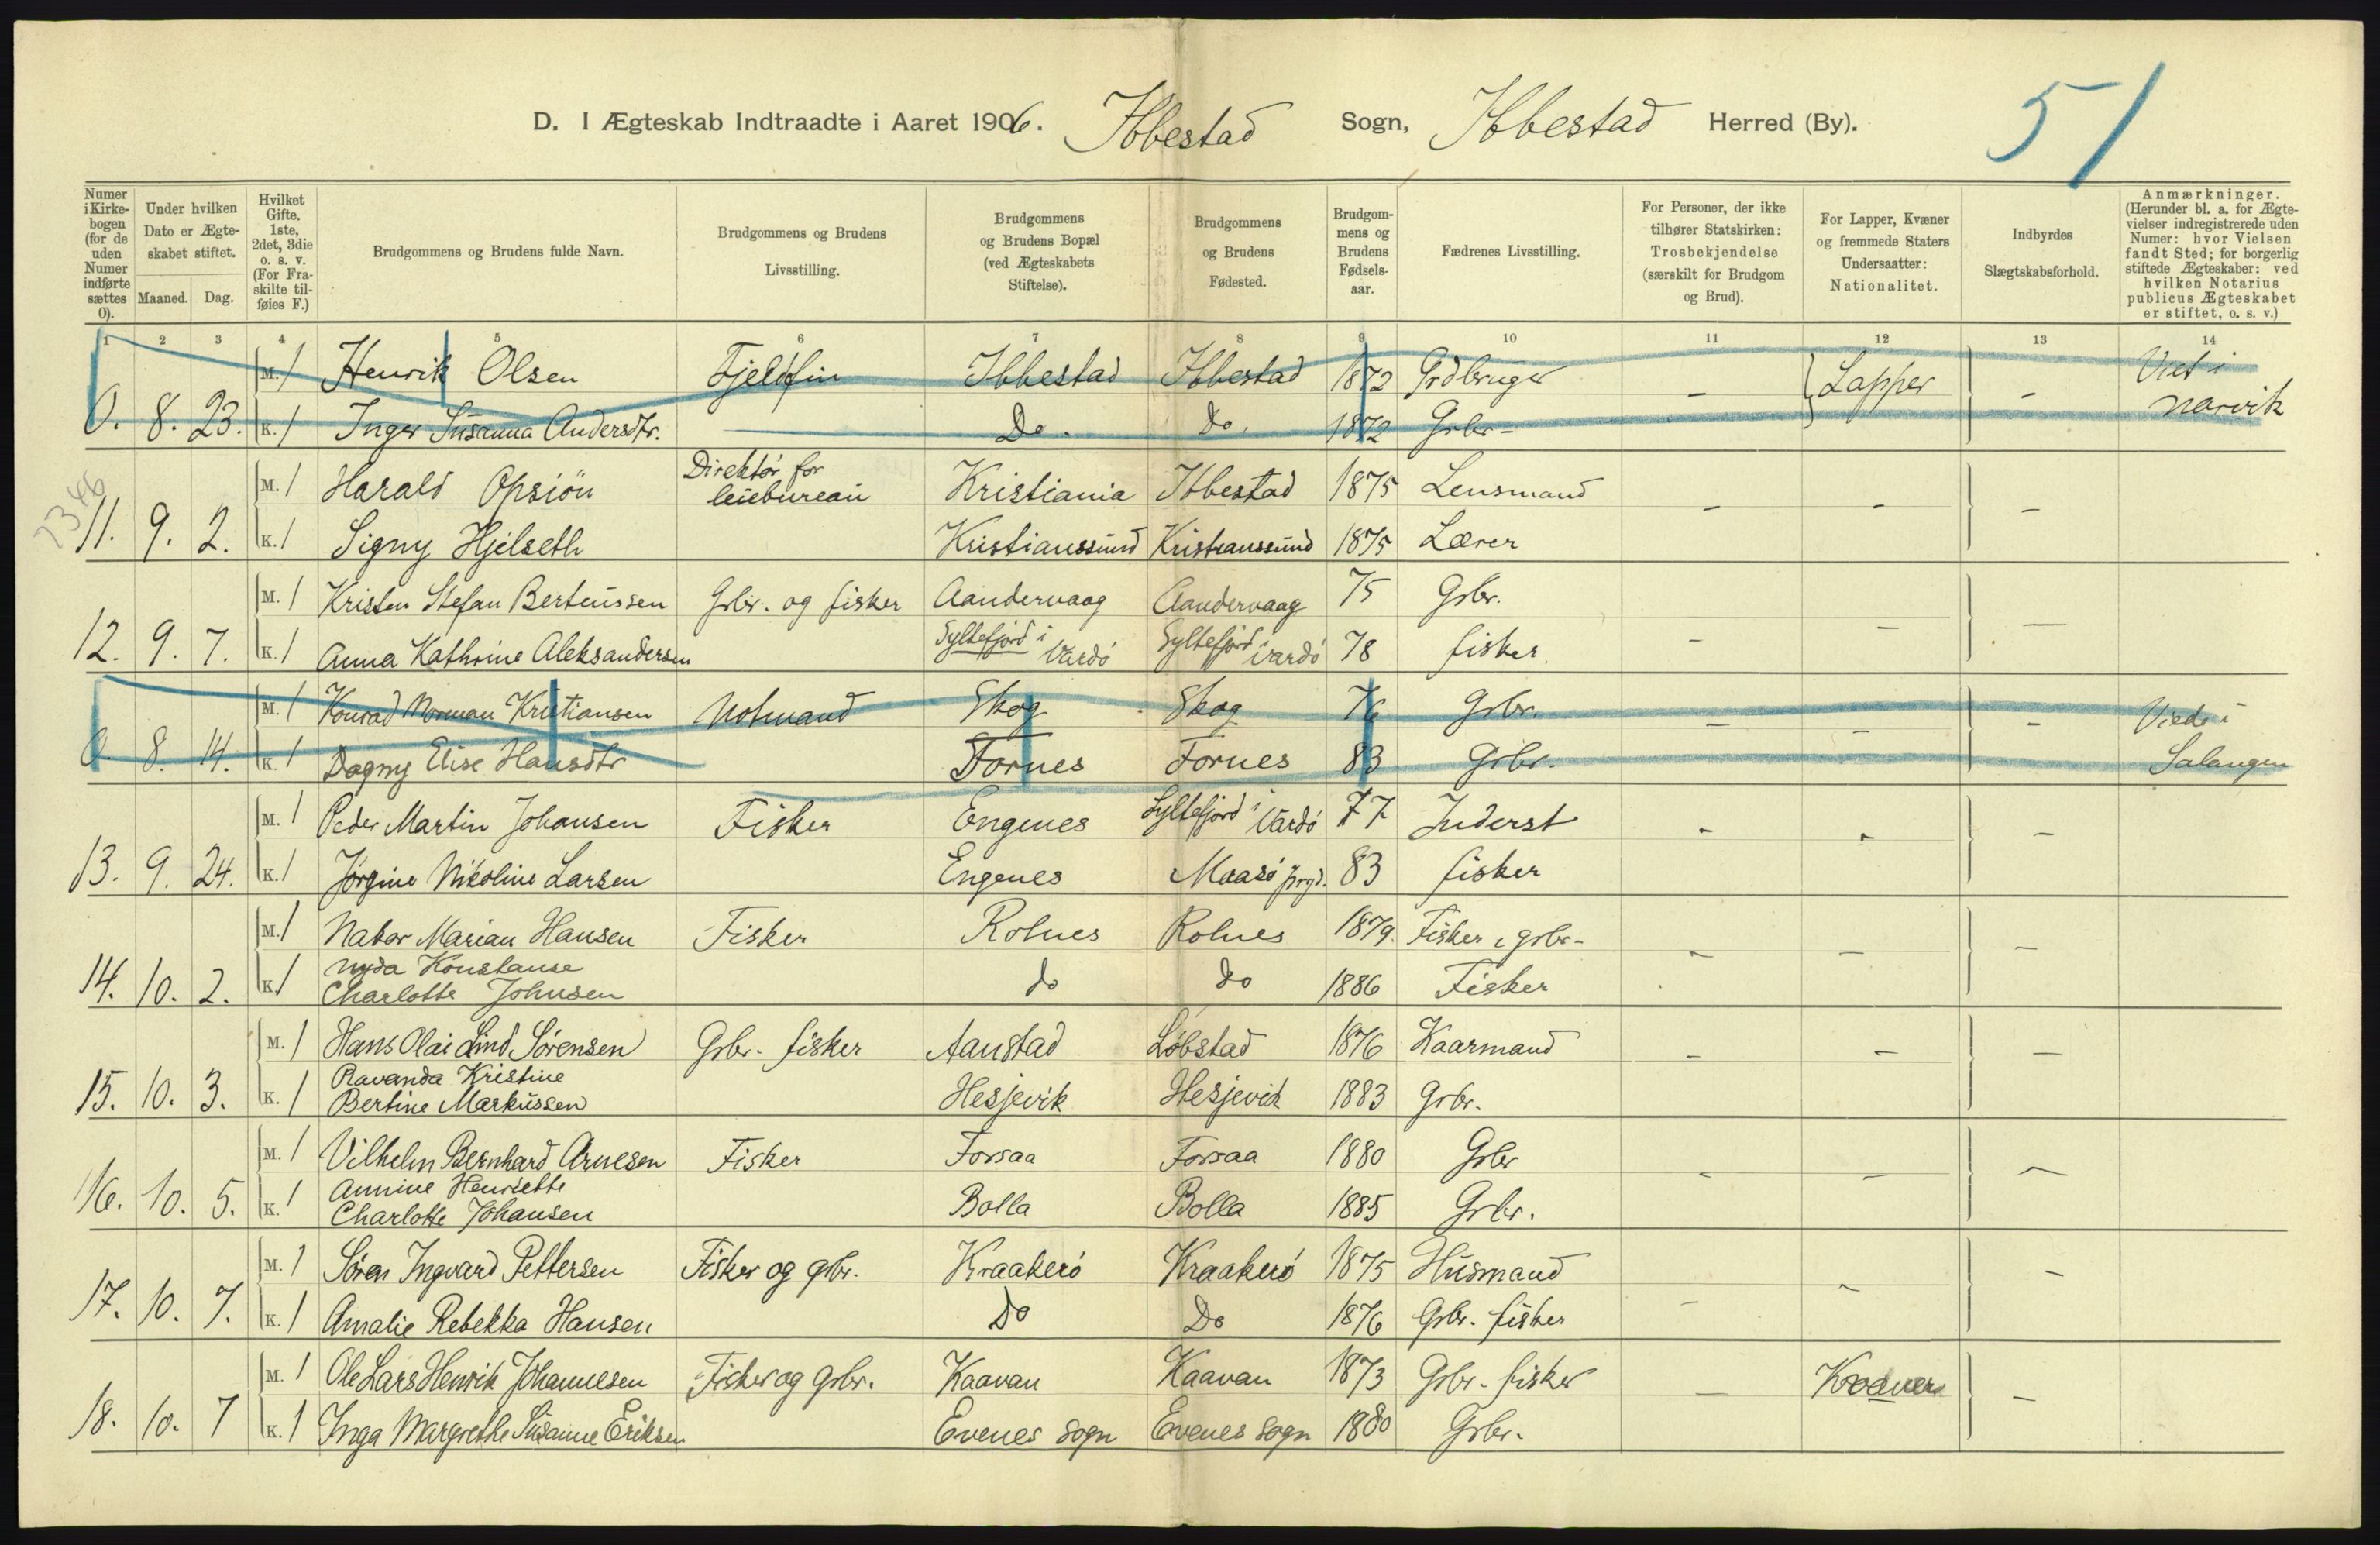 51
D. I Ægteskab Indtraadte i Aaret 1906. Ibbestad Sogn, Ibbestad Herred (By).
Numer i Kirke-bogen (for de uden Numer indførte sættes 0). | Under hvilken Dato er Ægte-skabet stiftet. Maaned. Dag. | Hvilket Gifte. 1ste, 2det, 3die o. s. v. (For Fra-skilte til-føies F.) | Brudgommens og Brudens fulde Navn. | Brudgommens og Brudens Livsstilling. | Brudgommens og Brudens Bopæl (ved Ægteskabets Stiftelse). | Brudgommens og Brudens Fødested. | Brudgom-mens og Brudens Fødsels-aar. | Fædrenes Livsstilling. | For Personer, der ikke tilhører Statskirken: Trosbekjendelse (særskilt for Brudgom og Brud). | For Lapper, Kvæner og fremmede Staters Undersaatter: Nationalitet. | Indbyrdes Slægtskabsforhold. | Anmærkninger. (Herunder bl. a. for Ægte-vielser indregistrerede uden Numer: hvor Vielsen fandt Sted; for borgerlig stiftede Ægteskaber: ved hvilken Notarius publicus Ægteskabet er stiftet, o. s. v.)
1 2 3 4 5 6 7 8 9 10 11 12 13 14
M. 1 Henrik Olsen Fjeldfin Ibbestad Ibbestad 1872 Grdbruger Lapper Viet i
0. 8. 23. K. 1 Inger Susanna Andersdtr. Do. Do. 1872 Grbr - - - Narvik
M. 1 Harald Opsiön Direktør for leiebureau Kristiania Ibbestad 1875 Lensmand
11. 9. 2. K. 1 Signy Hjelseth Kristianssund Kristianssund 1875 Lærer - - -
M. 1 Kristen Stefan Berteussen Grbr. og fisker Aandervaag Aandervaag 75 Grbr.
12. 9. 7. K. 1 Anna Kathrine Aleksandersen Syltefjord i Vardø Syltefjord i Vardø 78 fisker - - -
M. 1 Konrad Norman Kristiansen Notmand Skog Skog 76 Grbr. - - - Viede i
0. 8. 14. K. 1 Dagny Elise Hansdtr Fornes Fornes 83 Grbr. Salangen
M. 1 Peder Martin Johansen Fisker Engenes Syltefjord i Vardø 77 Inderst - - -
13. 9. 24. K. 1 Jørgine Nikoline Larsen Engenes Maasø prgd. 83 fisker
M. 1 Nabor Marian Hansen Fisker Rolnes Rolnes 1879. Fisker & grbr-
14. 10. 2. K. 1 Nyda Konstanse Charlotte Johnsen do do 1886 Fisker - - -
M. 1 Hans Olai Lind Sørensen Grbr. fisker Aanstad Løbstad 1876 Kaarmand - - -
15. 10. 3. K. 1 Ravanda Kristine Bertine Markussen Hesjevik Hesjevik 1883 Grbr.
M. 1 Vilhelm Bernhard Arnesen Fisker Forsaa Forsaa 1880 Grbr
16. 10. 5. K. 1 Annine Henriette Charlotte Johansen Bolla Bolla 1885 Grbr. - - -
M. 1 Søren Ingvard Pettersen Fisker og grbr. Kraakerø Kraakerø 1875 Husmand
17. 10. 7. K. 1 Amalie Rebekka Hansen Do Do 1876 Grbr. fisker - - -
M. 1 Ole Lars Henrik Johannesen Fisker og grbr. Kaavan Kaavan 1873 Grbr. fisker - Kvæner -
18. 10. 7 K. 1 Inga Margrethe Susanne Eriksen Evenes sogn Evenes sogn 1880 Grbr.